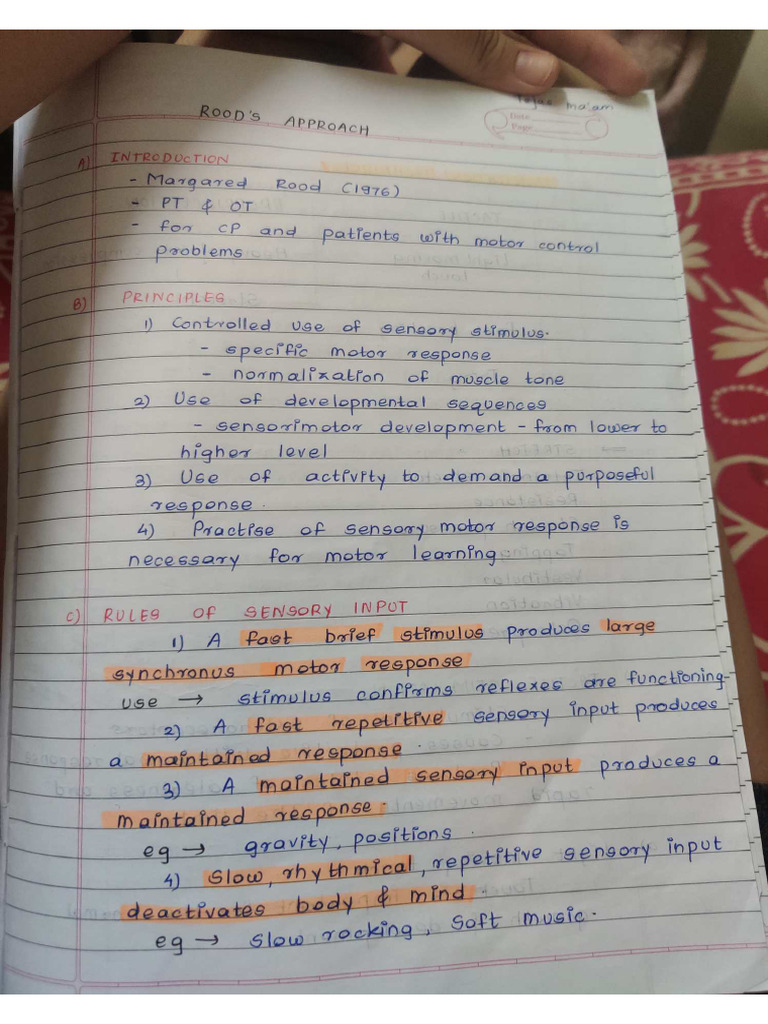 Tejas Ma'am
Date
Page
ROOD'S APPROACH
A) INTRODUCTION
- Margared Rood (1976)
- PT & OT
- for CP and patients with motor control
problems
B) PRINCIPLES
1) Controlled use of sensory stimulus.
- specific motor response
- normalization of muscle tone
2) Use of developmental sequences
- sensorimotor development - from lower to
higher level
3) Use of activity to demand a purposeful
response.
4) Practise of sensory motor response is
necessary for motor learning
C) RULES OF SENSORY INPUT
1) A fast brief stimulus produces large
synchronus motor response
use → stimulus confirms reflexes are functioning
2) A fast repetitive sensory input produces
a maintained response.
3) A maintained sensory input produces a
maintained response.
eg → gravity, positions.
4) Slow, rhythmical, repetitive sensory input
deactivates body & mind.
eg → slow rocking, soft music.